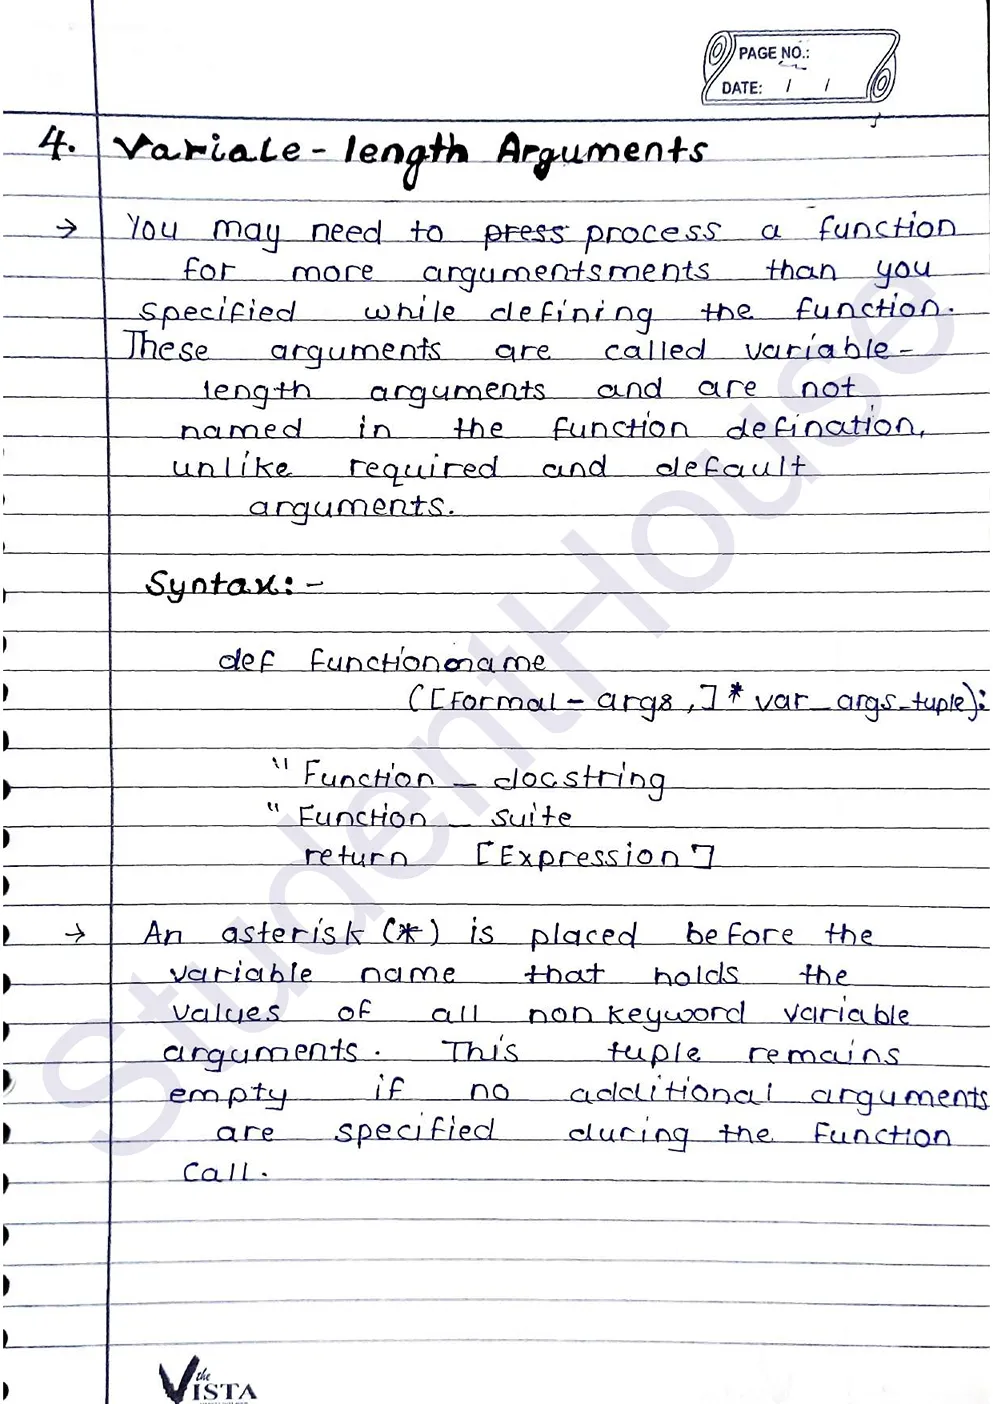 PAGE NO.:
DATE: / /
4. Variale - length Arguments
→ You may need to press process a function
for more argumentsments than you
specified while defining the function.
These arguments are called variable-
length arguments and are not
named in the function defination,
unlike required and default
arguments.
Syntax:-
def functionname
([Formal - args,] * var_args_tuple):
"Function - docstring
"Function - suite
return [Expression]
→ An asterisk (*) is placed before the
variable name that holds the
values of all nonkeyword variable
arguments. This tuple remains
empty if no additional arguments
are specified during the function
call.
StudentHouse
the
VISTA